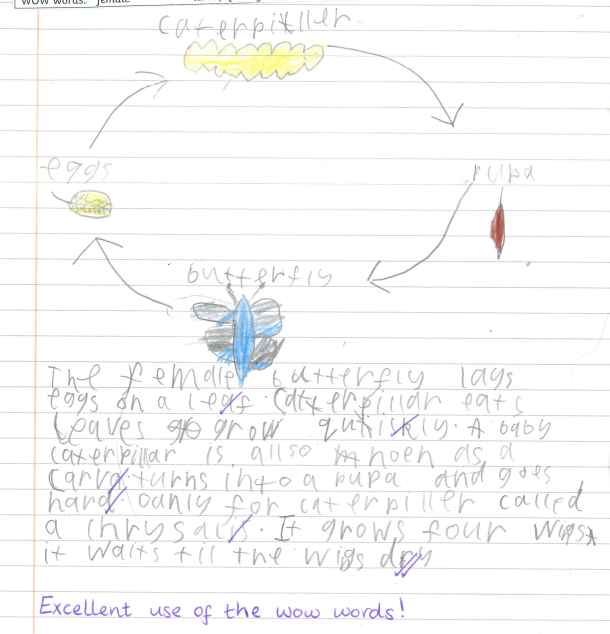 WOW words: female
caterpitller
eggs
pupa
butterfly
The female butterfly lays
eggs on a leaf. Catterpillar eats
Leaves to grow quikiskly. A baby
caterpillar is allso knoen as a
Carva turns into a pupa and goes
hard oanly for caterpiller called
a chrysalis. It grows four Wigs
it waits till the wigs dry
Excellent use of the wow words!